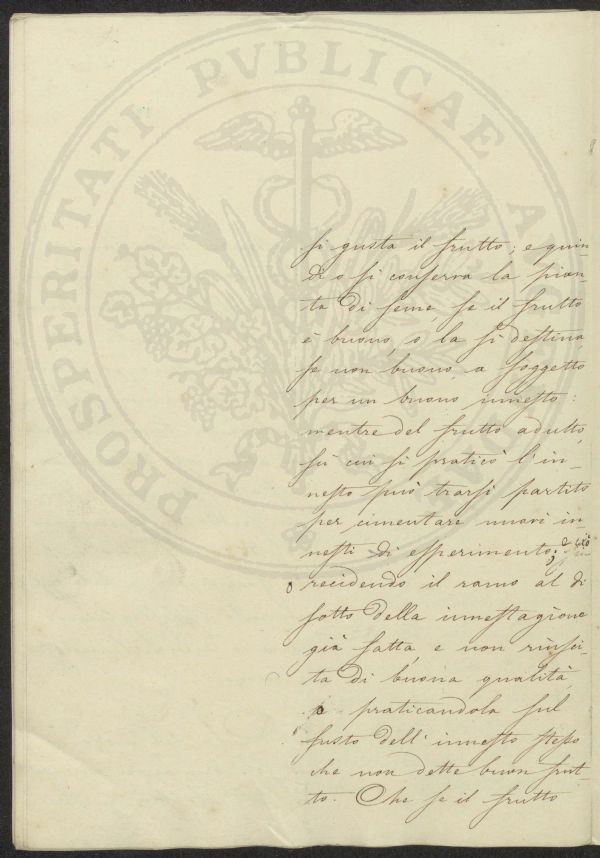 PROSPERITATI PVBLICAE
si gusta il frutto; e quin-
di o si conserva la pian-
ta di seme, se il frutto
è buono, o la si destina
se non buono, a soggetto
per un buono innesto:
mentre del frutto adulto,
su cui si praticò l'in-
nesto può trarsi partito
per cimentare nuovi in-
nesti di esperimento; e ciò
o recidendo il ramo al di
sotto della innestagione
già fatta, e non riusci-
ta di buona qualità,
o praticandola sul
fusto dell'innesto stesso
che non dette buon frut-
to. Che se il frutto